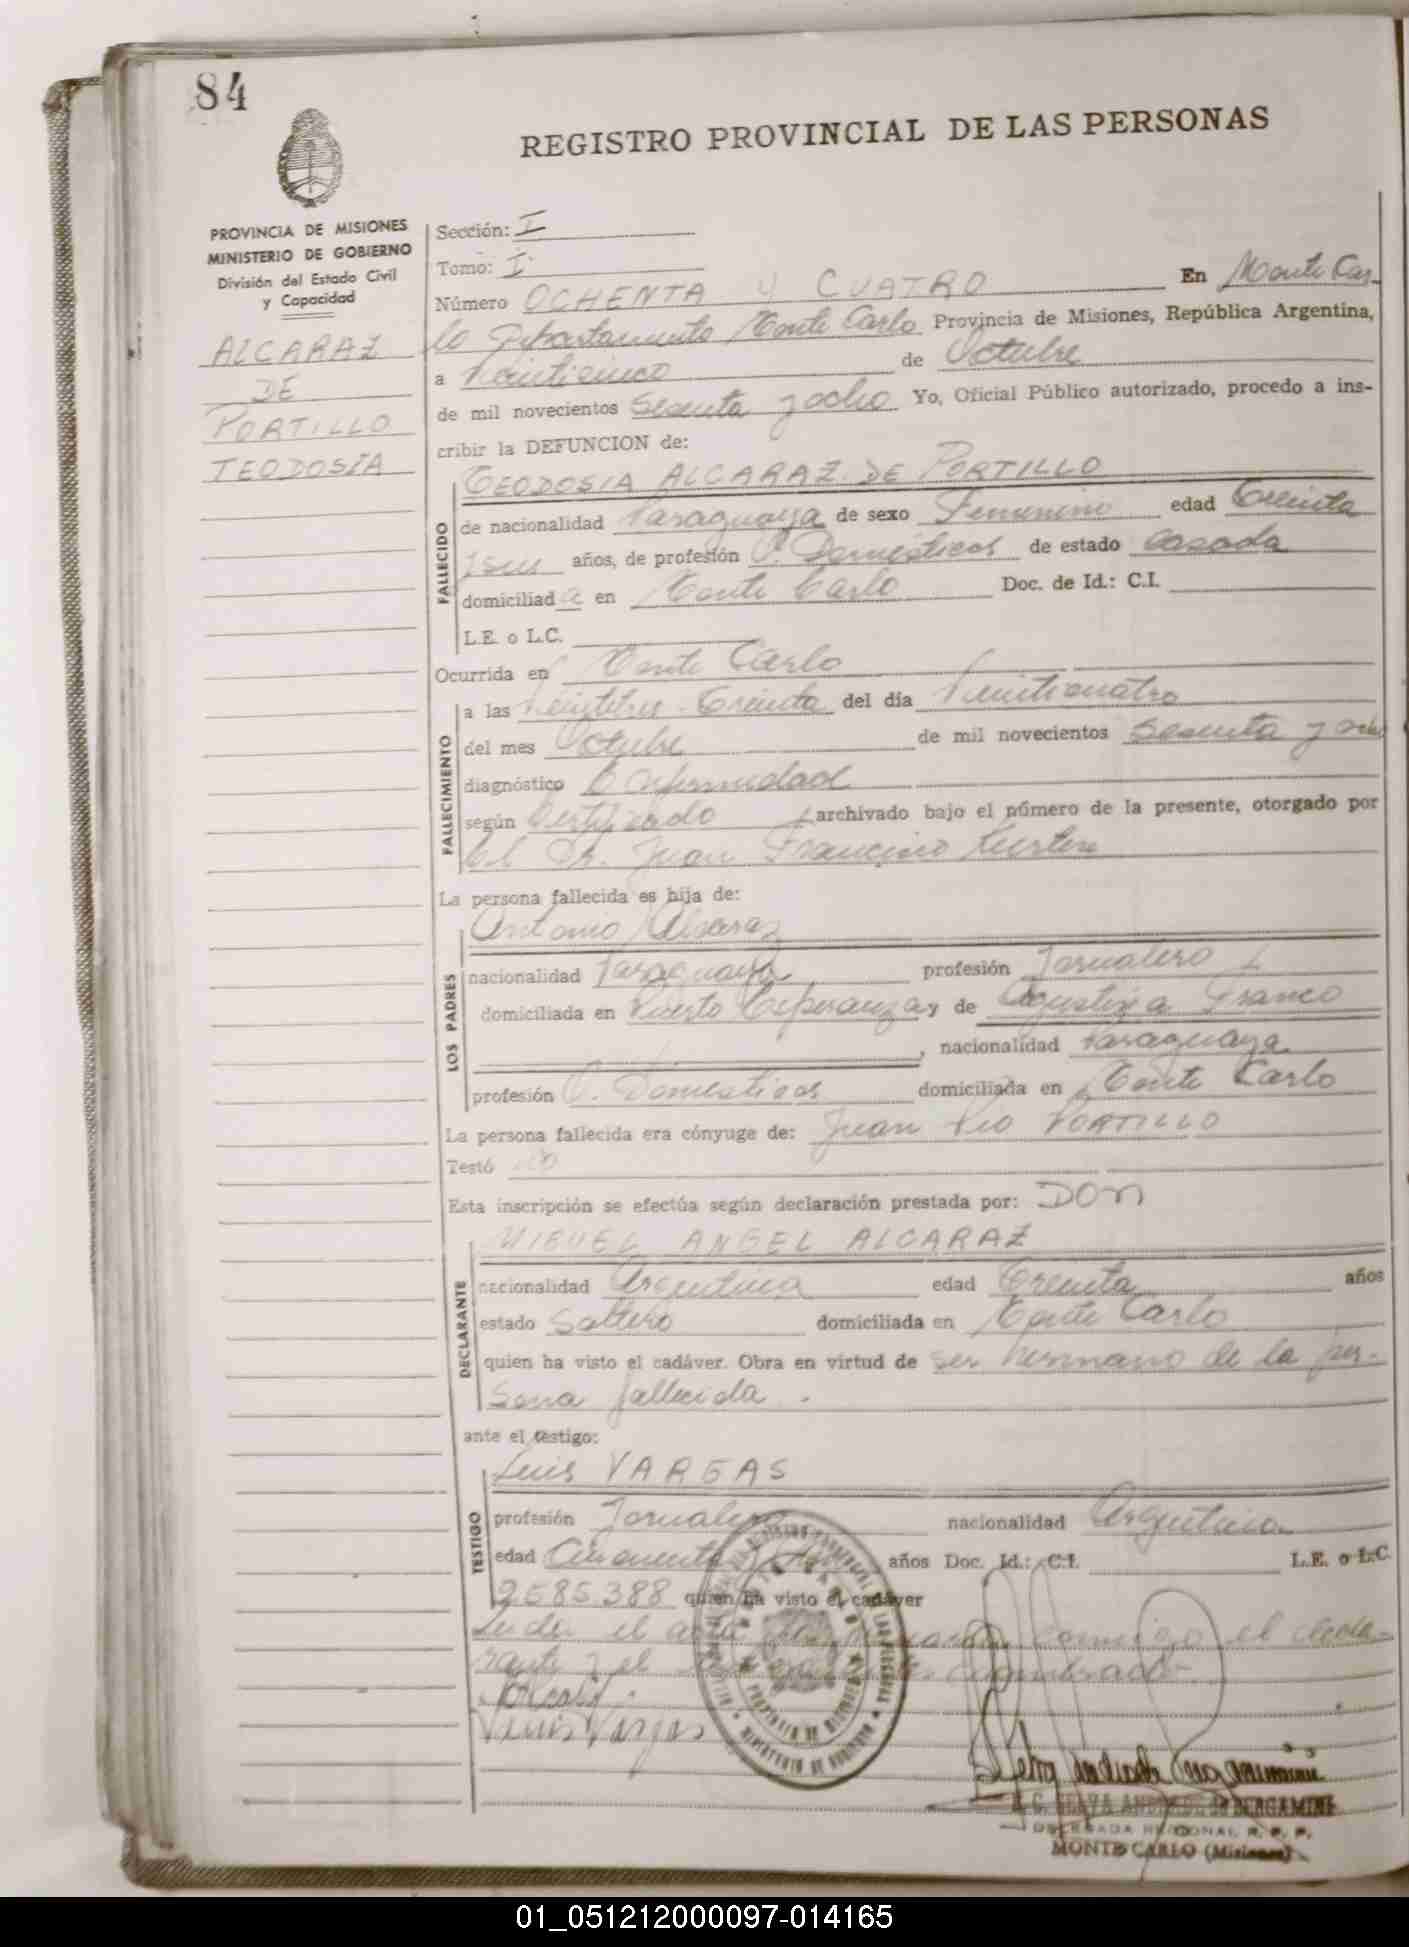 84
REGISTRO PROVINCIAL DE LAS PERSONAS
PROVINCIA DE MISIONES
MINISTERIO DE GOBIERNO
División del Estado Civil
y Capacidad
ALCARAZ
DE
PORTILLO
TEODOSIA
Sección: I
Tomo: I
Número OCHENTA Y CUATRO En Monte Car-
lo Departamento Monte Carlo Provincia de Misiones, República Argentina,
a Veinticinco de Octubre
de mil novecientos Sesenta y ocho Yo, Oficial Público autorizado, procedo a ins-
cribir la DEFUNCION de:
TEODOSIA ALCARAZ DE PORTILLO
FALLECIDO
de nacionalidad Paraguaya de sexo Femenino edad Treinta
y seis años, de profesión Q. Domésticos de estado Casada
domiciliada en Monte Carlo Doc. de Id.: C.I.
L.E. o L.C.
Ocurrida en Monte Carlo
FALLECIMIENTO
a las Veintitres Treinta del día Veinticuatro
del mes Octubre de mil novecientos Sesenta y ocho
diagnóstico Enfermedad
según Certificado archivado bajo el número de la presente, otorgado por
el Dr. Juan Francisco
La persona fallecida es hija de:
Antonio Alcaraz
LOS PADRES
nacionalidad Paraguaya profesión Jornalero
domiciliada en Puerto Esperanza y de Agustina Franco
, nacionalidad Paraguaya
profesión Q. Domesticos domiciliada en Monte Carlo
La persona fallecida era cónyuge de: Juan Pio PORTILLO
Testó no
Esta inscripción se efectúa según declaración prestada por: DON
MIGUEL ANGEL ALCARAZ
DECLARANTE
nacionalidad Argentina edad Treinta años
estado Soltero domiciliada en Monte Carlo
quien ha visto el cadáver. Obra en virtud de ser hermano de la per-
sona fallecida.
ante el testigo:
Luis VARGAS
TESTIGO
profesión Jornalero nacionalidad Argentina
edad Cincuenta años Doc. Id.: C.I. L.E. o L.C.
2585.388 quien ha visto el cadáver
Leida el acta conmigo el decla-
rante y el
Luis Vargas
PROVINCIA DE MISIONES
MINISTERIO DE GOBIERNO
BERGAMINI
DELEGADA REGIONAL R. P. P.
MONTE CARLO (Misiones)
01_051212000097-014165